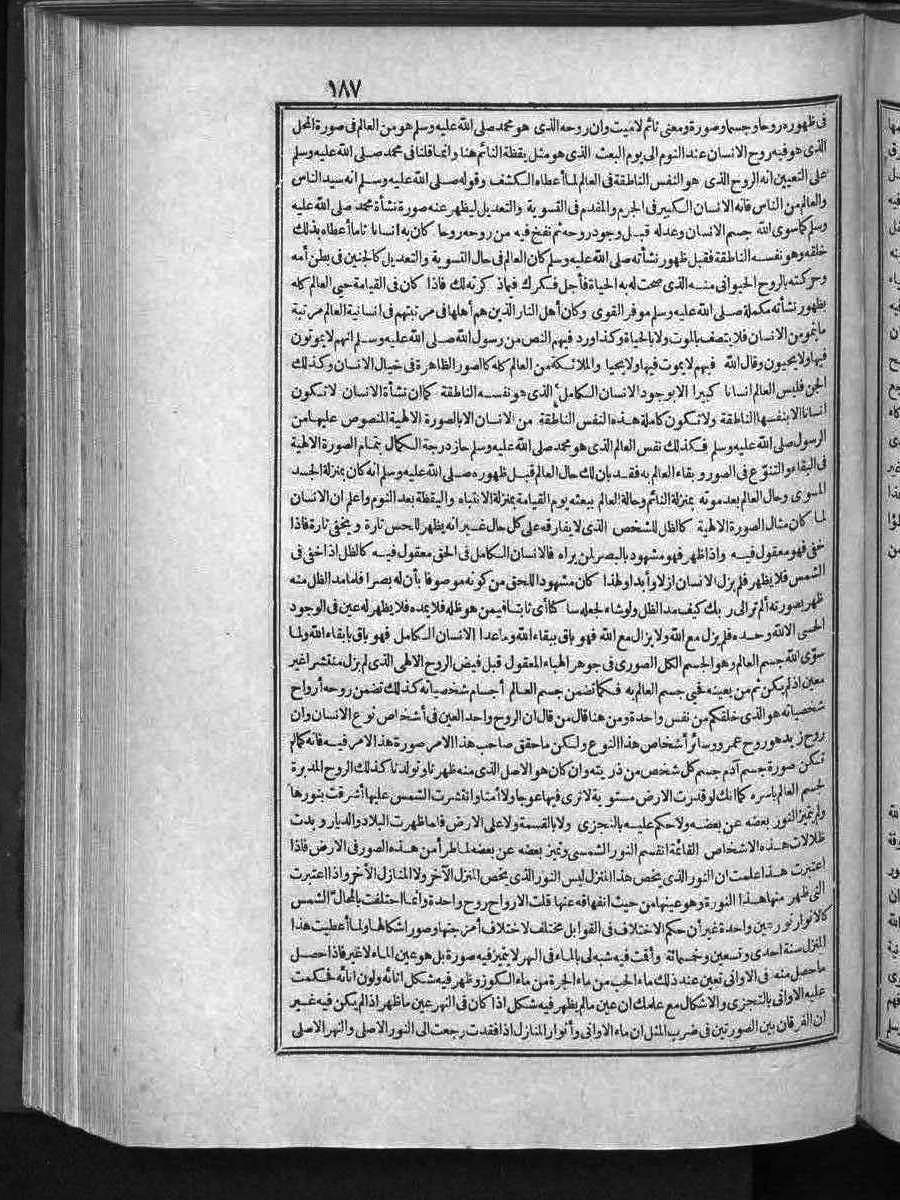 ١٨٧
فى ظهوره روحا وجسما وصورة ومعنى نائم لا ميت وان روحه الذى هو محمد صلى الله عليه وسلم هو من العالم فى صورة المحل
الذى هو فيه روح الانسان عند النوم الى يوم البعث الذى هو مثل يقظة النائم هنا وانما قلنا فى محمد صلى الله عليه وسلم
على التعيين انه الروح الذى هو النفس الناطقة فى العالم لما أعطاه الكشف وقوله صلى الله عليه وسلم انه سيد الناس
والعالم من الناس فانه الانسان الكبير فى الجرم والمقدم فى التسوية والتعديل ليظهر عنه صورة نشأة محمد صلى الله عليه
وسلم كما سوى الله جسم الانسان وعدله قبل وجود روحه ثم نفخ فيه من روحه روحا كان به انسانا تاما أعطاه بذلك
خلقه وهو نفسه الناطقة فقبل ظهور نشأته صلى الله عليه وسلم كان العالم فى حال التسوية والتعديل كالجنين فى بطن أمه
وحركته بالروح الحيوانى منه الذى صحت له به الحياة فأجل فكرك فيما ذكرته لك فاذا كان فى القيامة حيى العالم كله
بظهور نشأته مكملة صلى الله عليه وسلم موفر القوى وكان أهل النار الذين هم أهلها فى مرتبتهم فى انسانية العالم مرتبة
ما ينمو من الانسان فلا يتصف بالموت ولا بالحياة وكذا ورد فيهم النص من رسول الله صلى الله عليه وسلم انهم لا يموتون
فيها ولا يحيون وقال الله فيهم لا يموت فيها ولا يحيا والملائكة من العالم كله كالصور الظاهرة فى خيال الانسان وكذلك
الجن فليس العالم انسانا كبيرا الا بوجود الانسان الكامل الذى هو نفسه الناطقة كما ان نشأة الانسان لا تكون
انسانا الا بنفسها الناطقة ولا تكون كاملة هذه النفس الناطقة من الانسان الا بالصورة الالهية المنصوص عليها من
الرسول صلى الله عليه وسلم فكذلك نفس العالم الذى هو محمد صلى الله عليه وسلم حاز درجة الكمال بتمام الصورة الالهية
فى البقاء والتنوّع فى الصور وبقاء العالم به فقد بان لك حال العالم قبل ظهوره صلى الله عليه وسلم انه كان بمنزلة الجسد
المسوى وحال العالم بعد موته بمنزلة النائم وحالة العالم ببعثه يوم القيامة بمنزلة الانتباه واليقظة بعد النوم واعلم ان الانسان
لما كان مثال الصورة الالهية كالظل للشخص الذى لا يفارقه على كل حال غير انه يظهر للحس تارة ويخفى تارة فاذا
خفى فهو معقول فيه واذا ظهر فهو مشهود بالبصر لمن يراه فالانسان الكامل فى الحق معقول فيه كالظل اذا خفى فى
الشمس فلا يظهر فلم يزل الانسان ازلا وأبدا ولهذا كان مشهودا للحق من كونه موصوفا بأن له بصرا فلما مد الظل منه
ظهر بصورته ألم تر الى ربك كيف مد الظل ولو شاء لجعله ساكنا أى ثابتا فيمن هو ظله فلا يمده فلا يظهر له عين فى الوجود
الحسى الا لله وحده فلم يزل مع الله ولا يزال مع الله فهو باق ببقاء الله وما عدا الانسان الكامل فهو باق بابقاء الله ولما
سوّى الله جسم العالم وهو الجسم الكل الصورى فى جوهر الهباء المعقول قبل فيض الروح الالهى الذى لم يزل منتشرا غير
معين اذ لم يكن ثم من يعينه فحيى جسم العالم به فكما تضمن جسم العالم أجسام شخصياته كذلك تضمن روحه أرواح
شخصياته هو الذى خلقكم من نفس واحدة ومن هنا قال من قال ان الروح واحد العين فى أشخاص نوع الانسان وان
روح زيد هو روح عمرو وسائر أشخاص هذا النوع ولكن ما حقق صاحب هذا الامر صورة هذا الامر فيه فانه كما لم
تكن صورة جسم آدم جسم كل شخص من ذريته وان كان هو الاصل الذى منه ظهرنا وتولدنا كذلك الروح المدبرة
لجسم العالم بأسره كما انك لو قدرت الارض مستوية لا ترى فيها عوجا ولا أمتا وانتشرت الشمس عليها أشرقت بنورها
ولم يتميز النور بعضه عن بعضه ولا حكم عليه بالتجزى ولا بالقسمة ولا على الارض فلما ظهرت البلاد والديار وبدت
ظلالات هذه الاشخاص القائمة انقسم النور الشمسى وتميز بعضه عن بعضه لما طرأ من هذه الصور فى الارض فاذا
اعتبرت هذا علمت ان النور الذى يخص هذا المنزل ليس النور الذى يخص المنزل الآخر ولا المنازل الأخر واذا اعتبرت
التى ظهر منها هذا النور وهو عينها من حيث انفهاقه عنها قلت الارواح روح واحدة وانما اختلفت بالمحال الشمس
كالانوار نور عين واحدة غير أن حكم الاختلاف فى القوابل مختلف لاختلاف أمزجتها وصور اشكالها ولما أعطيت هذا
المنزل سنة احدى وتسعين وخمسمائة وأقت فيه شبه لى بالماء فى النهر لا يتميز فيه صورة بل هو عين الماء لا غير فاذا حصل
ما حصل منه فى الاوانى تعين عند ذلك ماء الحب من ماء الجرة من ماء الكوز وظهر فيه شكل انائه ولون انائه فحكمت
عليه الاوانى بالتجزى والاشكال مع علمك ان عين ما لم يظهر فيه شكل اذا كان فى النهر عين ما ظهر اذ لم يكن فيه غير
ان الفرقان بين الصورتين فى ضرب المثل ان ماء الاوانى وأنوار المنازل اذا فقدت رجعت الى النور الاصلى والنهر الاصلى